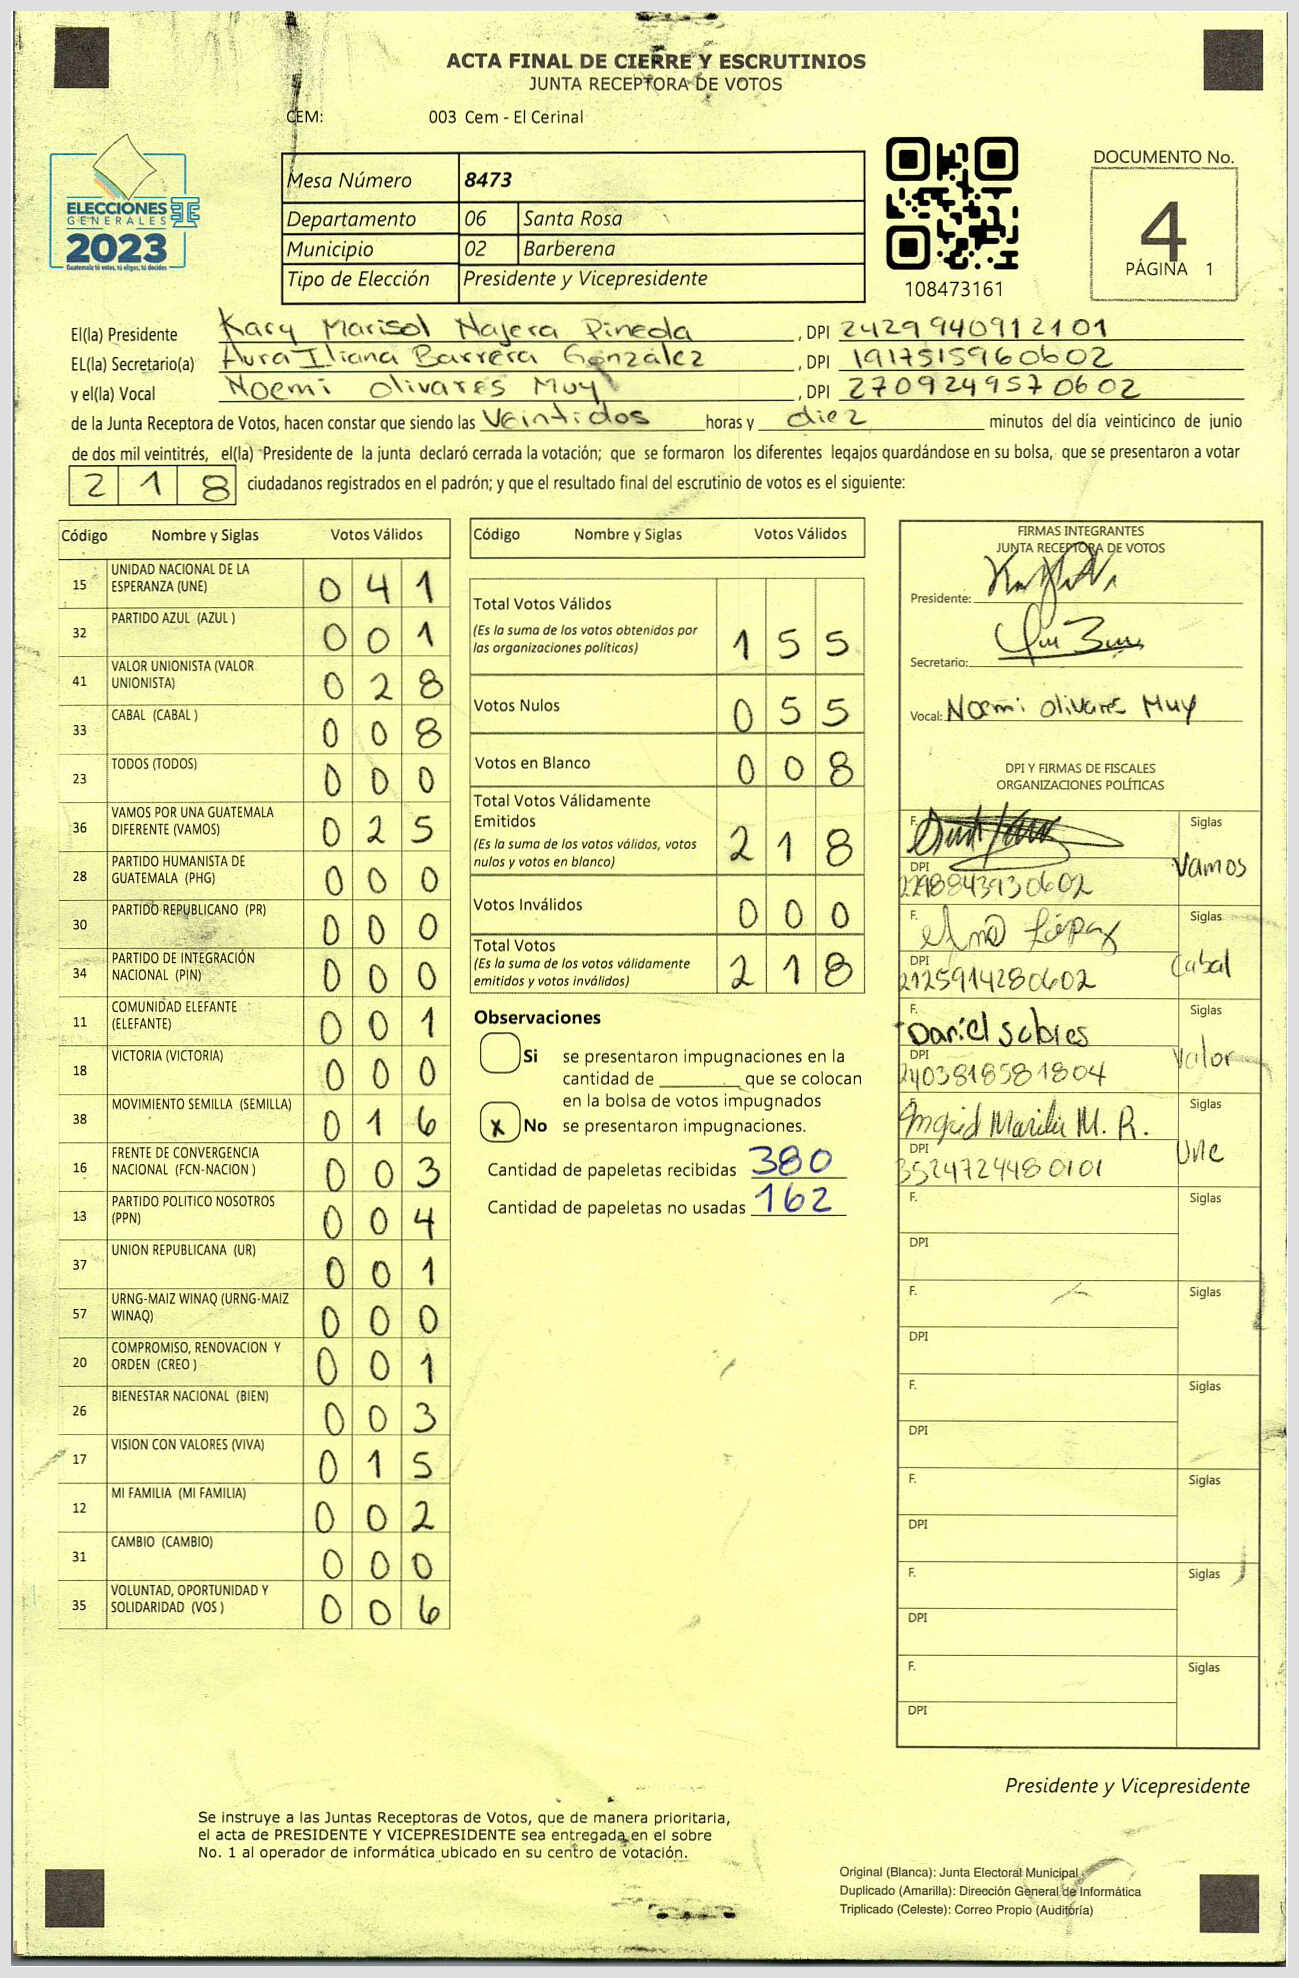 ACTA FINAL DE CIERRE Y ESCRUTINIOS
JUNTA RECEPTORA DE VOTOS
CEM: 003 Cem - El Cerinal
ELECCIONES
GENERALES
2023
Guatemala tú votas, tú eliges, tú decides
Mesa Número 8473
Departamento 06 Santa Rosa
Municipio 02 Barberena
Tipo de Elección Presidente y Vicepresidente
108473161
DOCUMENTO No.
4
PÁGINA 1
El(la) Presidente Kary Marisol Najera Pineda, DPI 2429940912101
EL(la) Secretario(a) Aura Iliana Barrera González, DPI 1917515960602
y el(la) Vocal Noemi olivares Muy, DPI 2709249570602
de la Junta Receptora de Votos, hacen constar que siendo las Veintidos horas y diez minutos del día veinticinco de junio
de dos mil veintitrés, el(la) Presidente de la junta declaró cerrada la votación; que se formaron los diferentes legajos guardándose en su bolsa, que se presentaron a votar
218 ciudadanos registrados en el padrón; y que el resultado final del escrutinio de votos es el siguiente:
Código Nombre y Siglas Votos Válidos
15 UNIDAD NACIONAL DE LA ESPERANZA (UNE) 041
32 PARTIDO AZUL (AZUL ) 001
41 VALOR UNIONISTA (VALOR UNIONISTA) 028
33 CABAL (CABAL ) 008
23 TODOS (TODOS) 000
36 VAMOS POR UNA GUATEMALA DIFERENTE (VAMOS) 025
28 PARTIDO HUMANISTA DE GUATEMALA (PHG) 000
30 PARTIDO REPUBLICANO (PR) 000
34 PARTIDO DE INTEGRACIÓN NACIONAL (PIN) 000
11 COMUNIDAD ELEFANTE (ELEFANTE) 001
18 VICTORIA (VICTORIA) 000
38 MOVIMIENTO SEMILLA (SEMILLA) 016
16 FRENTE DE CONVERGENCIA NACIONAL (FCN-NACION ) 003
13 PARTIDO POLITICO NOSOTROS (PPN) 004
37 UNION REPUBLICANA (UR) 001
57 URNG-MAIZ WINAQ (URNG-MAIZ WINAQ) 000
20 COMPROMISO, RENOVACION Y ORDEN (CREO ) 001
26 BIENESTAR NACIONAL (BIEN) 003
17 VISION CON VALORES (VIVA) 015
12 MI FAMILIA (MI FAMILIA) 002
31 CAMBIO (CAMBIO) 000
35 VOLUNTAD, OPORTUNIDAD Y SOLIDARIDAD (VOS ) 006
Código Nombre y Siglas Votos Válidos
Total Votos Válidos
(Es la suma de los votos obtenidos por las organizaciones políticas) 155
Votos Nulos 055
Votos en Blanco 008
Total Votos Válidamente Emitidos
(Es la suma de los votos válidos, votos nulos y votos en blanco) 218
Votos Inválidos 000
Total Votos
(Es la suma de los votos válidamente emitidos y votos inválidos) 218
Observaciones
Si se presentaron impugnaciones en la
cantidad de ________ que se colocan
en la bolsa de votos impugnados
x No se presentaron impugnaciones.
Cantidad de papeletas recibidas 380
Cantidad de papeletas no usadas 162
FIRMAS INTEGRANTES
JUNTA RECEPTORA DE VOTOS
Presidente:
Secretario:
Vocal: Noemi olivares Muy
DPI Y FIRMAS DE FISCALES
ORGANIZACIONES POLÍTICAS
F. Siglas
Vamos
DPI 2298843930602
F. López Siglas
Cabal
DPI 2125914280602
F. Siglas
Daniel Valor
DPI 2403818581804
F. Ingrid M. R. Siglas
Une
DPI 3524724480101
F. Siglas
DPI
F. Siglas
DPI
F. Siglas
DPI
F. Siglas
DPI
F. Siglas
DPI
F. Siglas
DPI
Presidente y Vicepresidente
Se instruye a las Juntas Receptoras de Votos, que de manera prioritaria,
el acta de PRESIDENTE Y VICEPRESIDENTE sea entregada en el sobre
No. 1 al operador de informática ubicado en su centro de votación.
Original (Blanca): Junta Electoral Municipal
Duplicado (Amarilla): Dirección General de Informática
Triplicado (Celeste): Correo Propio (Auditoría)